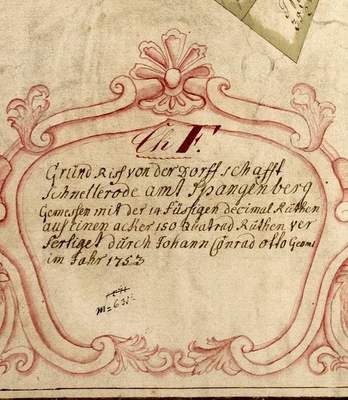 Ch F.
Grund Risf von der Dorff schafft
Schnellerode amt Spangenberg
Gemessen mit der 14 Füssigen decimal Ruthen
auf einen acker 150 Quatrad Ruthen ver
fertiget durch Johann Conrad Otto Geom:
im Jahr 1753